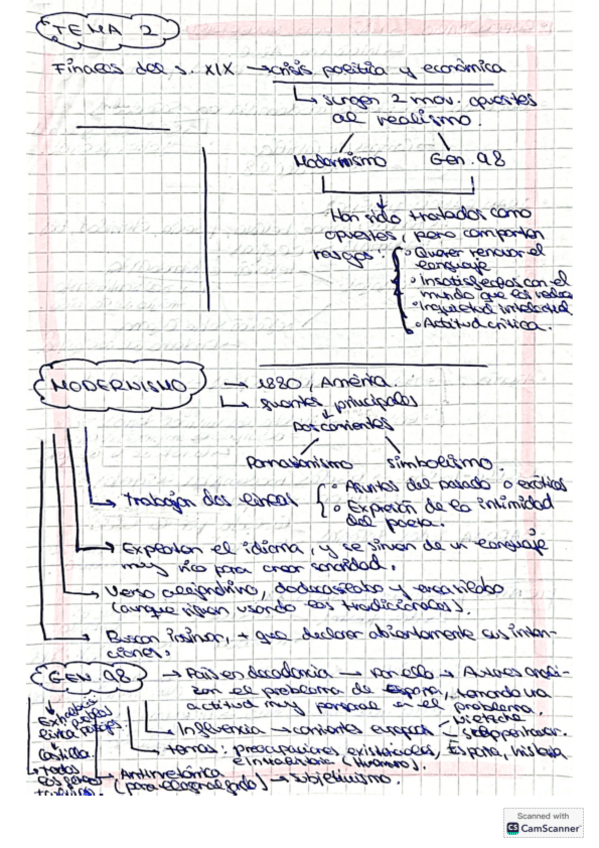 TEMA 2
Finales del s. XIX → crisis política y económica
↳ surgen 2 mov. opuestos
al realismo.
Modernismo Gen. 98
Han sido tratados como
opuestos, pero comparten
rasgos:
° Querer renovar el
lenguaje
° Insatisfechos con el
mundo que les rodea
° Inquietud intelectual
° Actitud crítica.
MODERNISMO → 1880, América.
↳ fuentes principales
Dos corrientes
Parnasianismo simbolismo.
→ Trabajan dos líneas
° Asuntos del pasado o exóticos
° Expresión de la intimidad
del poeta.
→ Explotan el idioma, y se sirven de un lenguaje
muy rico para crear sonoridad.
→ Verso alejandrino, dodecasílabo y eneasílabo
(aunque siguen usando los tradicionales).
→ Buscan insinuar, + que declarar abiertamente sus inten-
ciones.
GEN. 98 → País en decadencia → Por ello → Autores anali-
zan el problema de España, tomando una
actitud muy personal en el problema.
→ Influencia → corrientes europeas
Nietzsche
Schopenhauer.
→ temas: preocupaciones existenciales, España, historia
e intrahistoria (Unamuno).
→ Antirretórica → subjetivismo.
Castilla
→ todos
los géneros
Scanned with
CS CamScanner